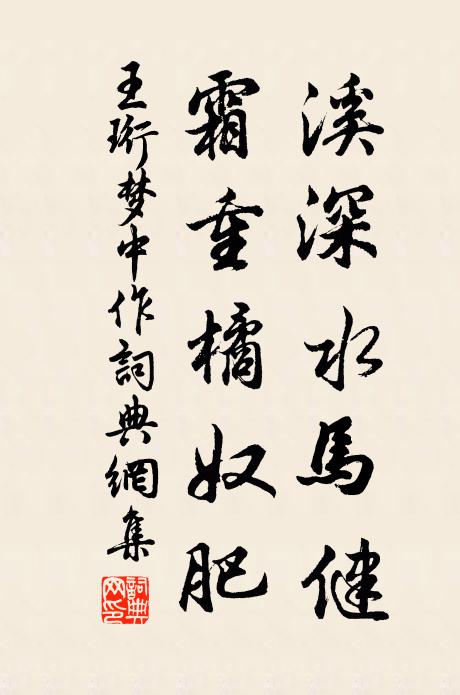 溪深水馬健
霜重橘奴肥
王珩梦中作詞典網集
詞典網印